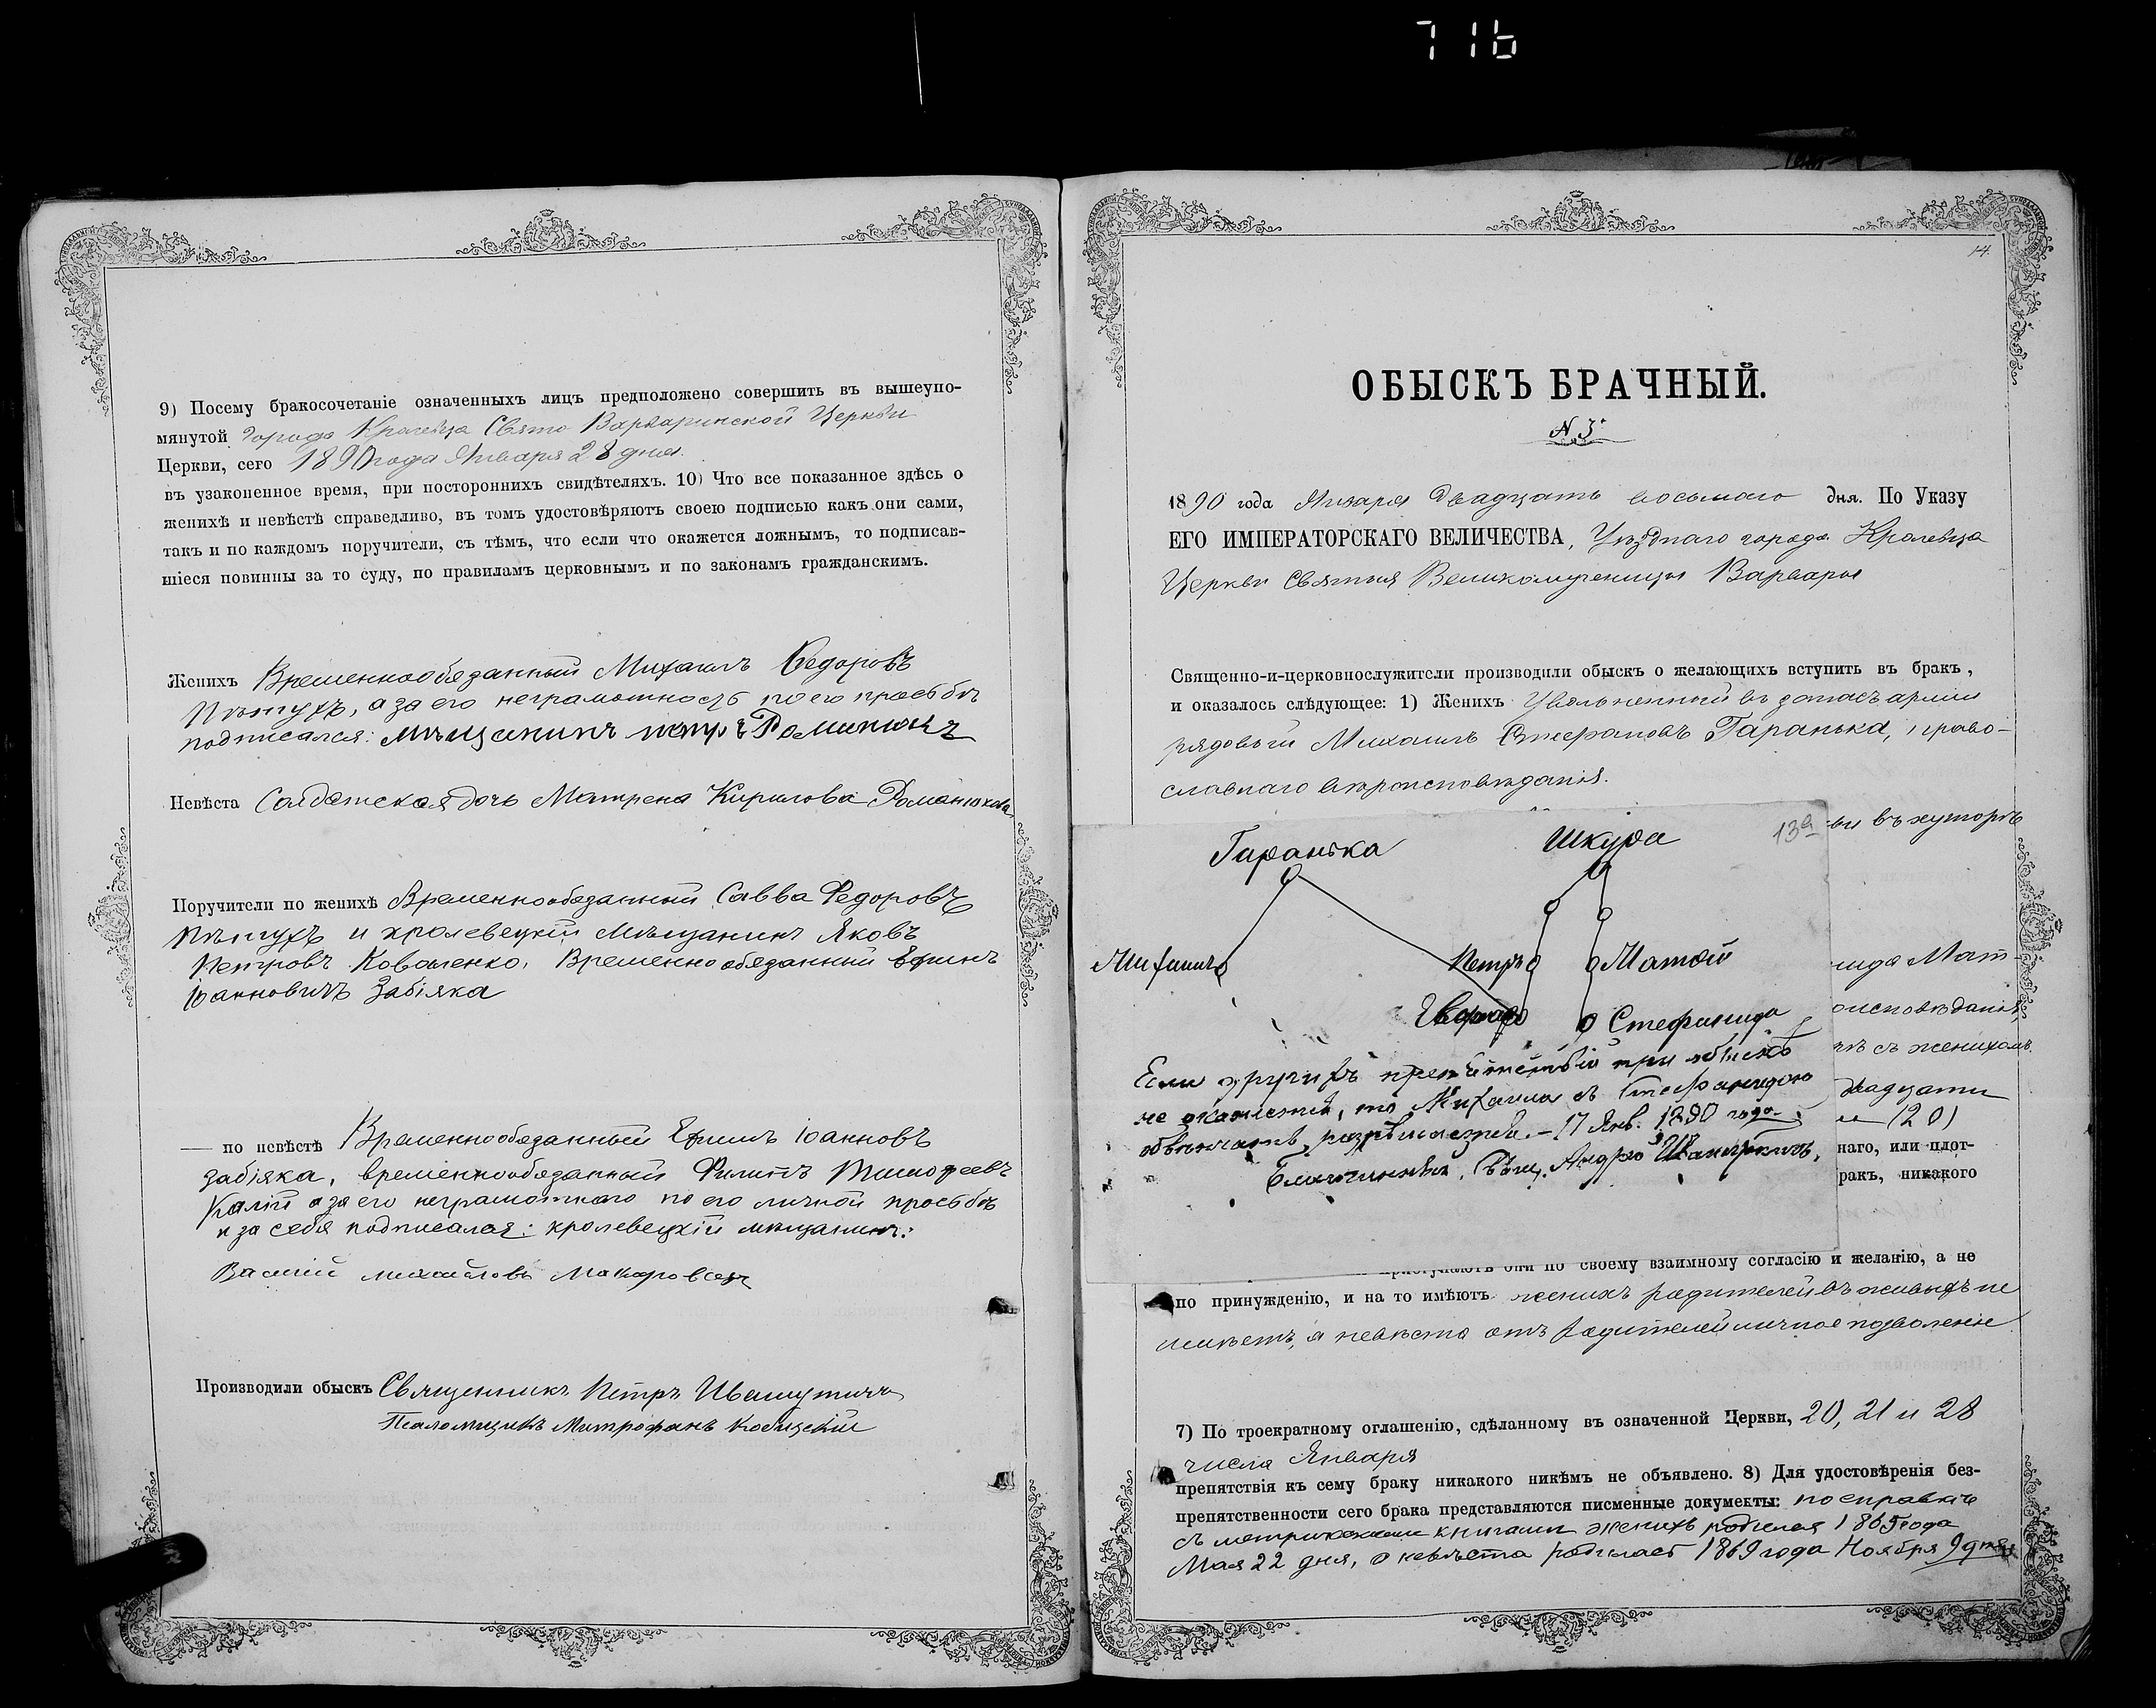 716
9) Посему бракосочетаніе означенныхъ лицъ предположено совершить въ вышеупо-
мянутой города Кролевца Свято Варваринской Церкви
Церкви, сего 1890 года Января 28 дня.
въ узаконенное время, при постороннихъ свидѣтеляхъ. 10) Что все показанное здѣсь о
женихѣ и невѣстѣ справедливо, въ томъ удостовѣряютъ своею подписью какъ они сами,
такъ и по каждомъ поручители, съ тѣмъ, что если что окажется ложнымъ, то подписав-
шіеся повинны за то суду, по правиламъ церковнымъ и по законамъ гражданскимъ.
Женихъ Временнообязанный Михаилъ Федоровъ
Пѣтухъ, а за его неграмотность по его просьбѣ
подписался: мѣщанинъ петръ Романюкъ
Невѣста Солдатская дочь Матрена Кирилова Романюкова
Поручители по женихѣ Временнообязанный Савва Федоровъ
Пѣтухъ и кролевецкій мѣщанинъ Яковъ
Петровъ Коваленко, Временнообязанный Ефимъ
Іоанновичъ Забіяка
— по невѣстѣ Временнообязанный Ефимъ Іоанновъ
Забіяка, временнообязанный Филипъ Тимофеевъ
Калій а за его неграмотнаго по его личной просьбѣ
и за себя подписался: кролевецкій мещанинъ:
Василій михайловъ
Производили обыскъ Священникъ Петръ
Псаломщикъ Митрофанъ
14.
ОБЫСКЪ БРАЧНЫЙ.
N 3
1890 года Января двадцать восьмаго дня. По Указу
ЕГО ИМПЕРАТОРСКАГО ВЕЛИЧЕСТВА, Уѣзднаго города Кролевца
Церкви Святыя Великомученицы Варвары
Священно-и-церковнослужители производили обыскъ о желающихъ вступить въ бракъ,
и оказалось слѣдующее: 1) Женихъ Уволенный въ запасъ арміи
рядовый Михаилъ Стефановъ Гаранька, право-
славнаго вѣроисповѣданія.
въ хуторѣ
13а
Гаранька Шкура
Михаилъ Петръ Матѳій
Стефанида
Если другихъ препятствій при обыскѣ
не окажется, то Михаила съ Стефанидою
обвѣнчать разрѣшается. — 17 Янв. 1890 года.
Благочинный, Свящ. Андрей
нида Мат-
оисповѣданія,
съ женихомъ.
двадцати
(20)
наго, или плот-
ракъ, никакого
приступаютъ они по своему взаимному согласію и желанію, а не
по принужденію, и на то имѣютъ женихъ родителей въ живыхъ не
имѣетъ, а невѣста отъ родителей личное позволеніе
7) По троекратному оглашенію, сдѣланному въ означенной Церкви, 20, 21 и 28
числа Января
препятствія къ сему браку никакого никѣмъ не объявлено. 8) Для удостовѣренія без-
препятственности сего брака представляются писменные документы: по справкѣ
съ метрическими книгами женихъ родился 1865 года
Мая 22 дня, а невѣста родилась 1869 года Ноября 9 дня